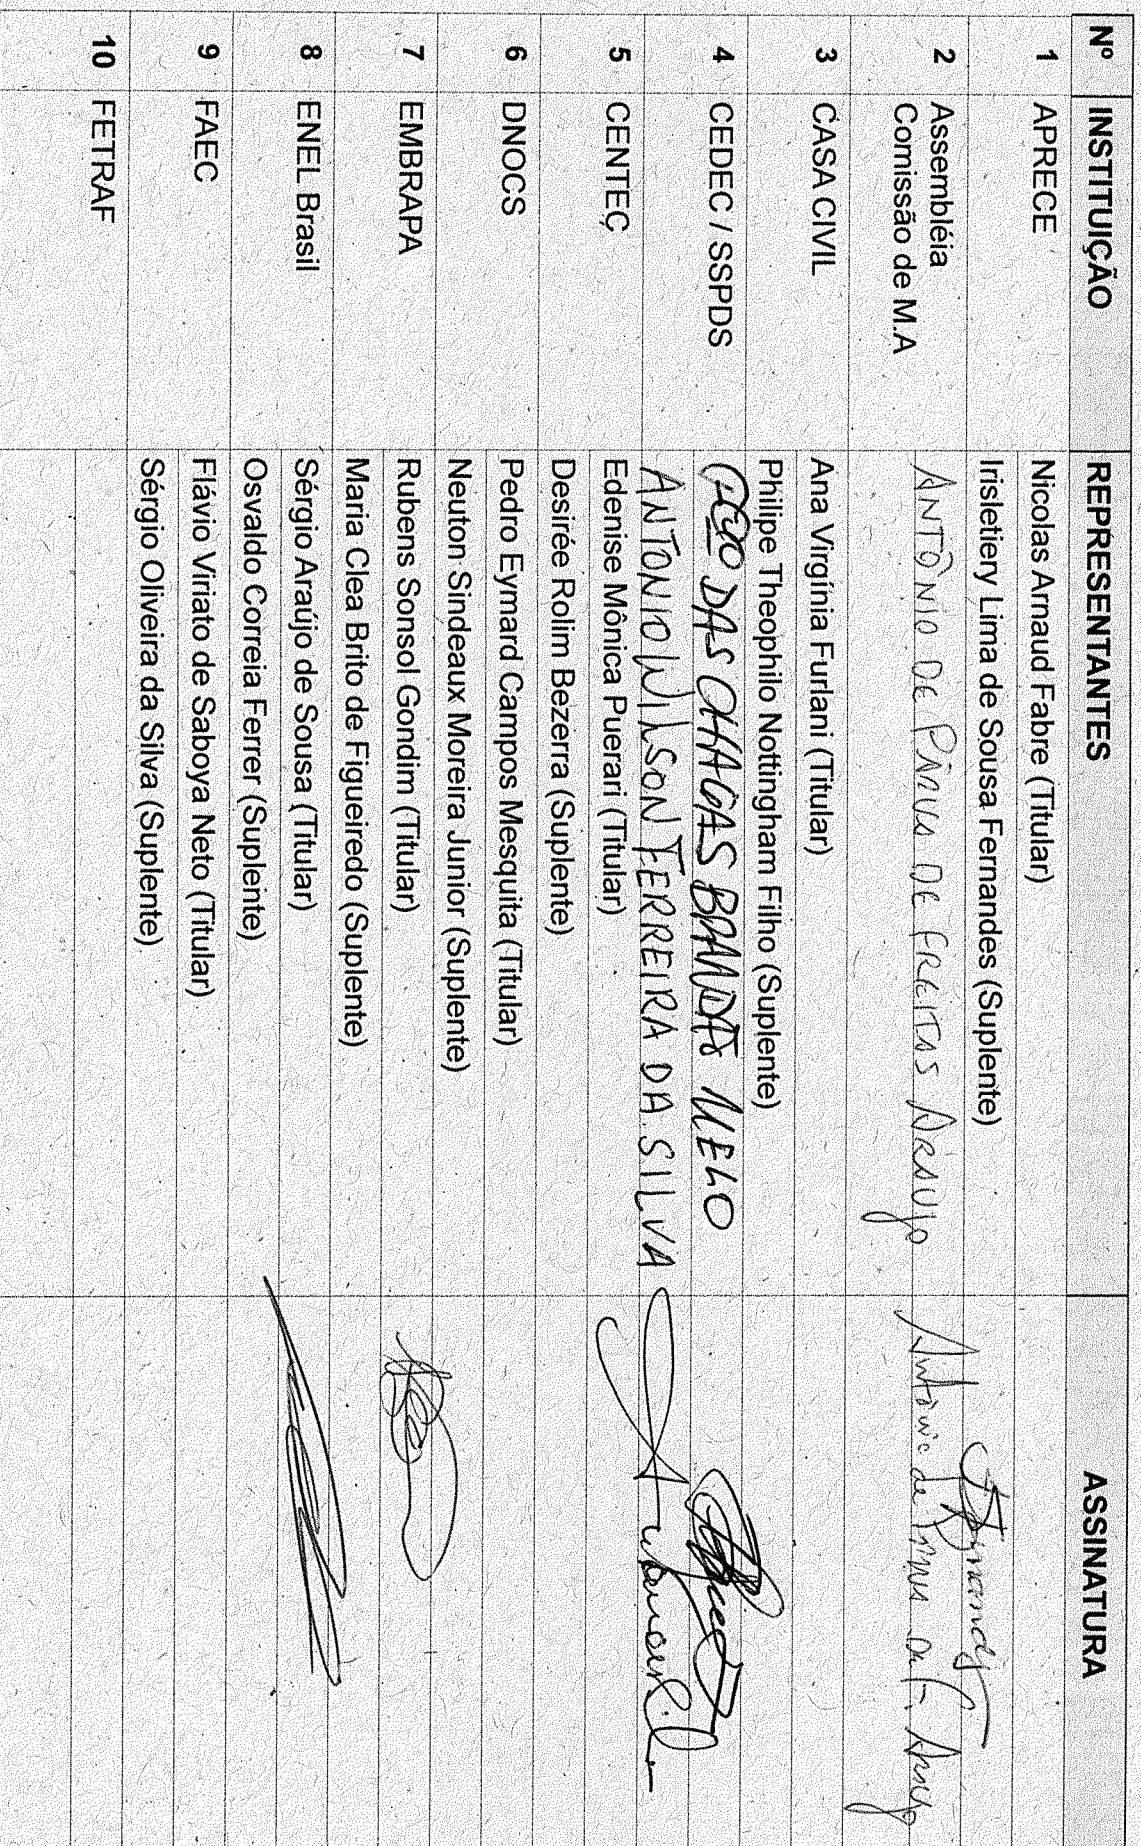 Nº INSTITUIÇÃO REPRESENTANTES ASSINATURA
1 APRECE Nicolas Arnaud Fabre (Titular)
Irisletiery Lima de Sousa Fernandes (Suplente)
2 Assembléia
Comissão de M.A
ANTÔNIO DE PÁDUA DE FREITAS ARAUJO Antônio de F. Araujo
3 CASA CIVIL Ana Virgínia Furlani (Titular)
Philipe Theophilo Nottingham Filho (Suplente)
4 CEDEC / SSPDS DAS CHAGAS BRANDÃO MELO
ANTONIO WILSON FERREIRA DA SILVA
5 CENTEC Edenise Mônica Puerari (Titular)
Desirée Rolim Bezerra (Suplente)
6 DNOCS Pedro Eymard Campos Mesquita (Titular)
Neuton Sindeaux Moreira Junior (Suplente)
7 EMBRAPA Rubens Sonsol Gondim (Titular)
Maria Clea Brito de Figueiredo (Suplente)
8 ENEL Brasil Sérgio Araújo de Sousa (Titular)
Osvaldo Correia Ferrer (Suplente)
9 FAEC Flávio Viriato de Saboya Neto (Titular)
Sérgio Oliveira da Silva (Suplente)
10 FETRAF